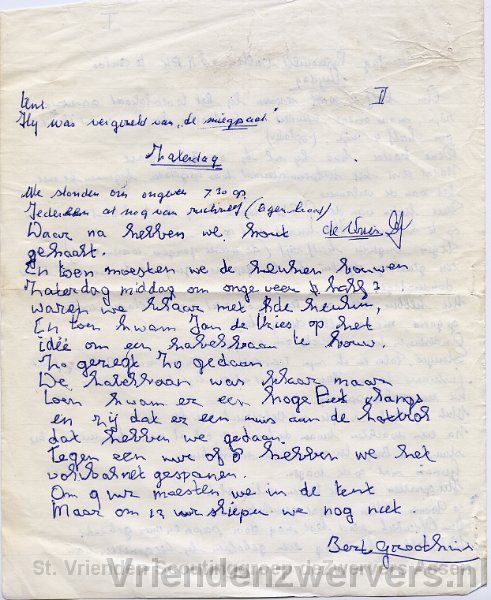 II
tent
Hy was vergroeid van „de
Zaterdag
We stonden om ongeveer 7 30 op
Iedereen at nog van rustneef (
Daar na hebben we hout de Uier
gehaalt.
En toen moesten we de keuken bouwen
Zaterdag middag om ongeveer half 3
waren we klaar met de keuken,
En toen kwam Jan de Vries op het
idéé om een kabelbaan te bouw.
Zo gezegt zo gedaan.
De kabelbaan was klaar maar
toen kwam er een hoge Piet langs
en zij dat er een muis aan de katrol
dat hebben we gedaan.
tegen een uur of 8 hebben we het
volleybal net gespanen.
Om 9 uur moesten we in de tent
Maar om 12 uur sliepen we nog niet.
Bert Groothuis
St. Vrienden Scoutinggroep deZwervers Assen
Vriendenzwervers.nl